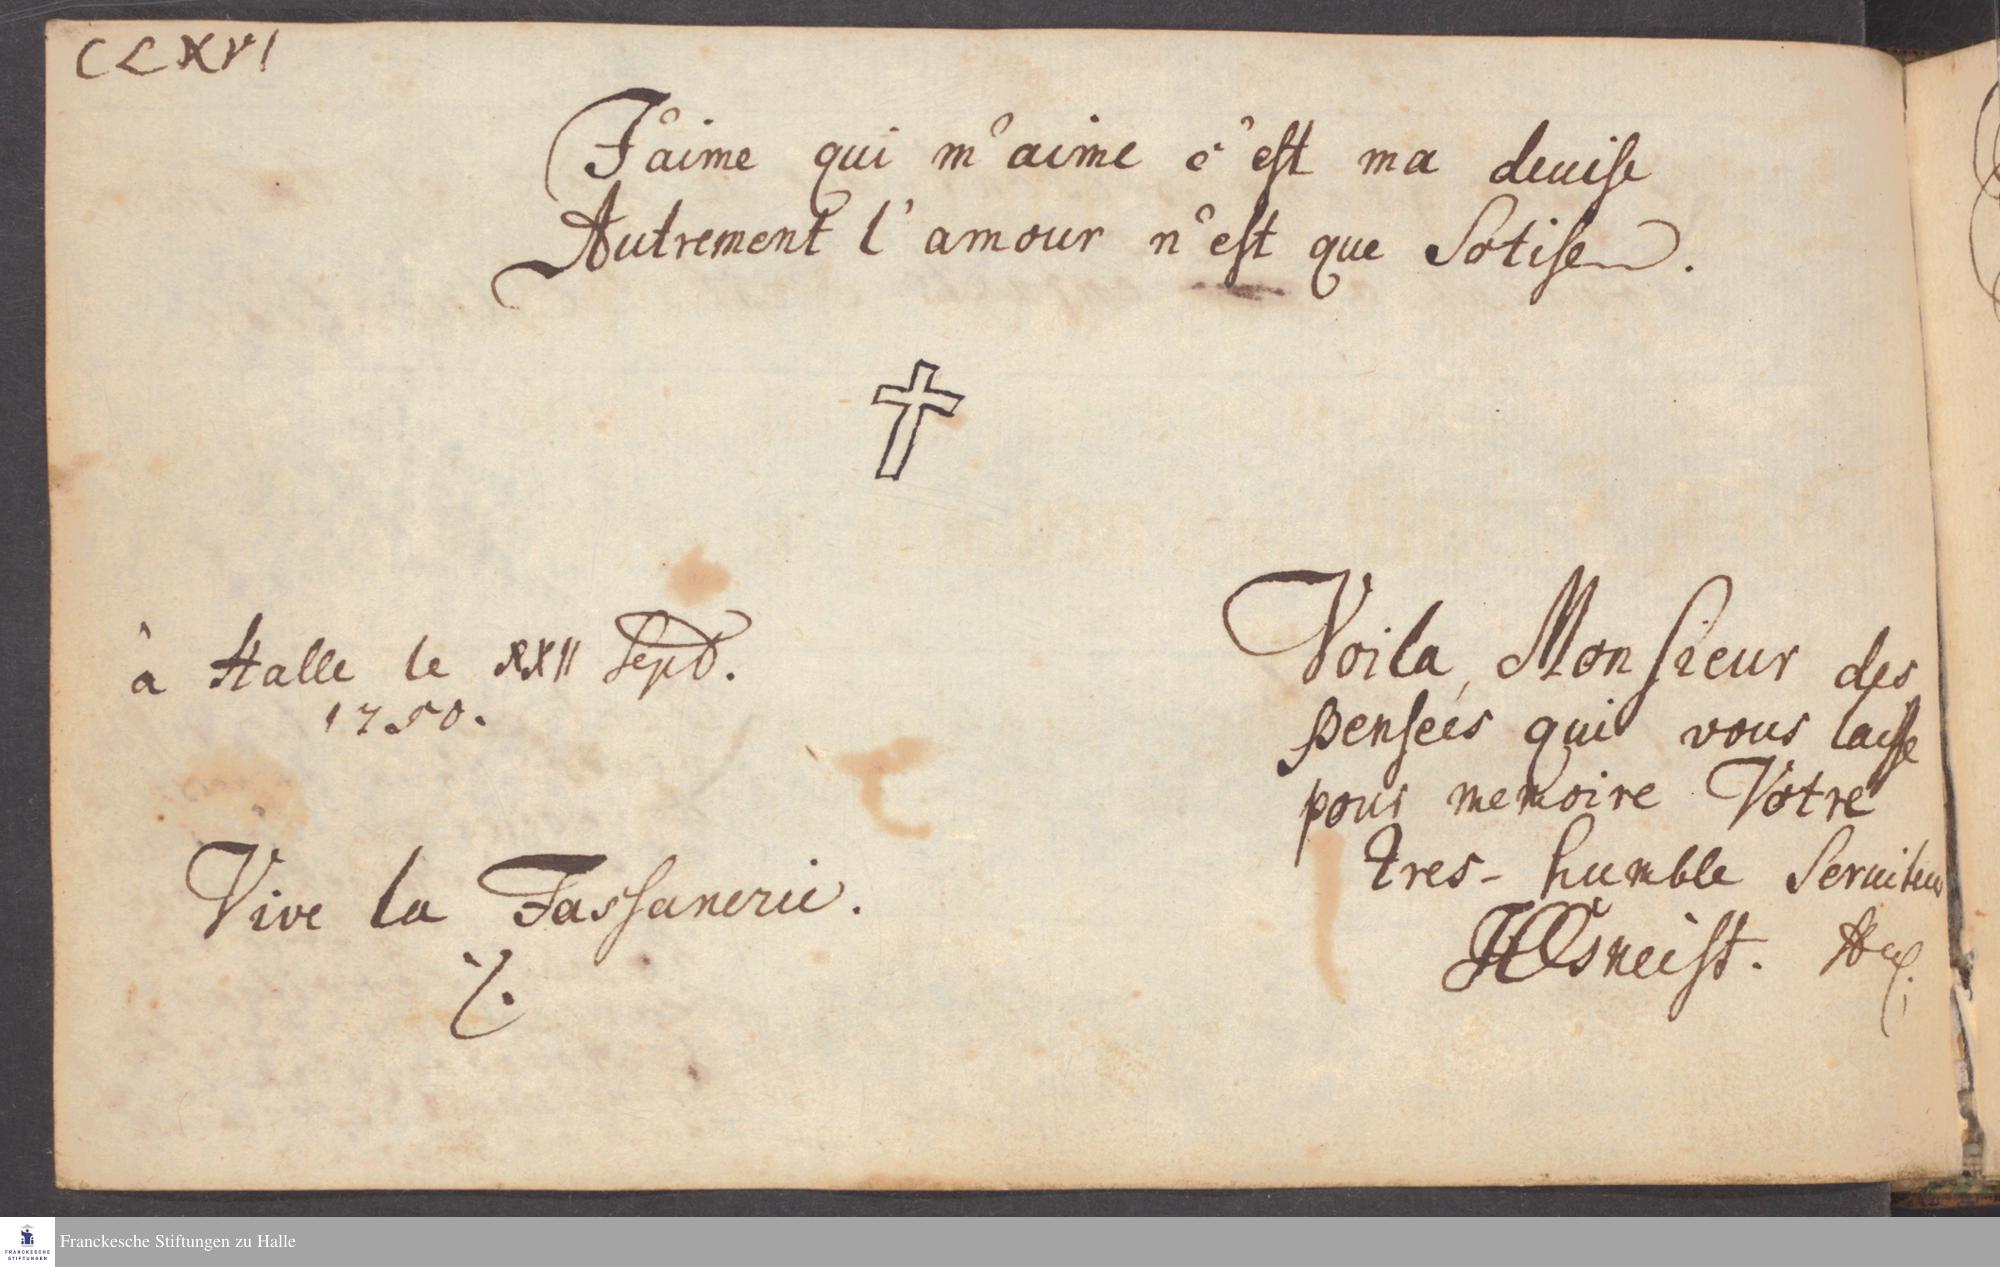 CLXVI
J'aime qui m'aime c'est ma devise
Autrement l'amour n'est que Sotise.
à Halle le XXII Sept.
1750.
Voila, Monsieur des
pensées qui vous laisse
pour memoire Votre
tres-humble Serviteur
Vive la Fassanerie.
Franckesche Stiftungen zu Halle
FRANCKESCHE
STIFTUNGEN